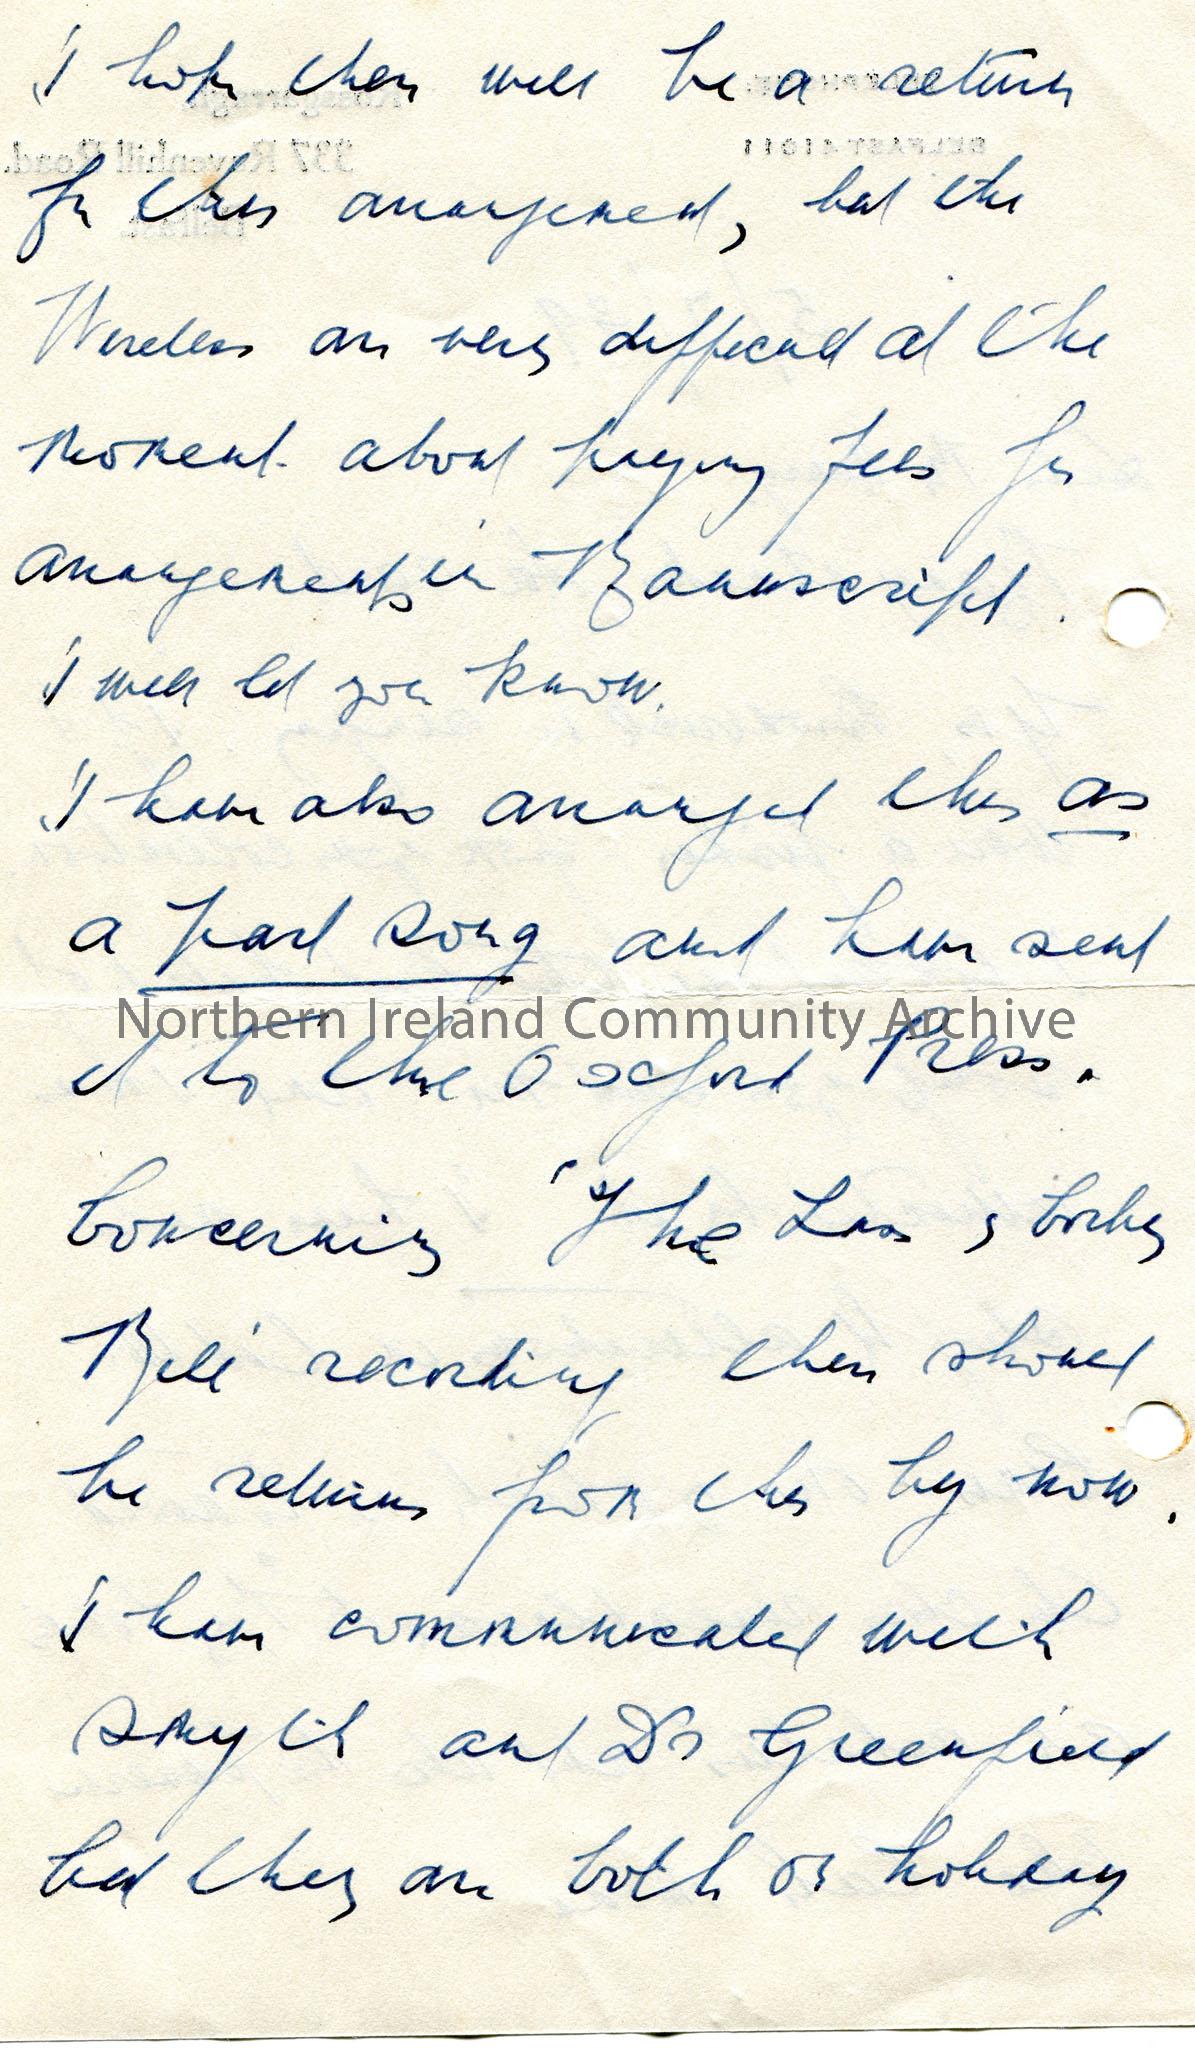 I hope there will be a return
for this arrangement, but the
Wireless are very difficult at the
moment about paying fees for
arrangements in Manuscript.
I will let you know.
I have also arranged this as
a part song and have sent
Northern Ireland Community Archive
it to the Oxford Press.
Concerning 'The Lass o Bonny
Bell' recording there should
be returns from this by now.
I have communicated with
Smyth and Dr Greenfield
but they are both on holiday
337 Ravenhill Road.
Belfast.
BELFAST 41011